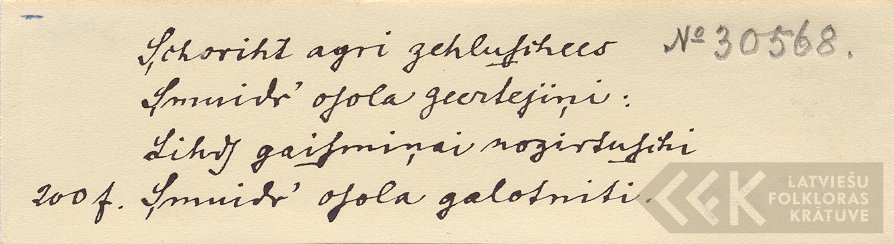 Schoriht agri zehluschees № 30568.
Smuidr' osola zeertejiņi:
Lihdz gaismiņai nozirtuschi
200 f. Smuidr' osola galotniti.
LATVIEŠU
FOLKLORAS
KRĀTUVE